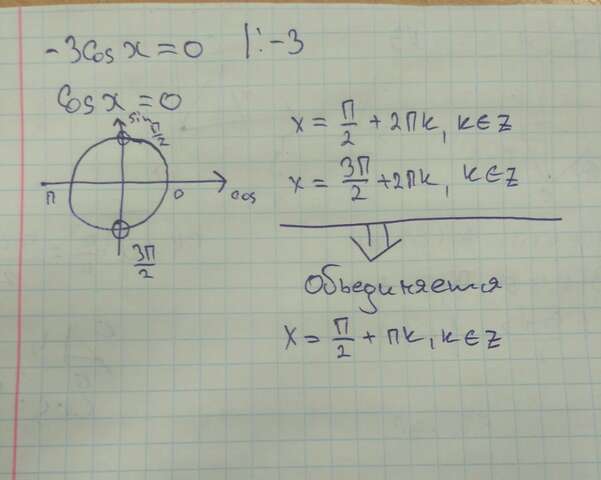 -3cos x = 0 |:-3
cos x = 0
sin
π/2
π
0
cos
3π/2
x = π/2 + 2πk, k∈Z
x = 3π/2 + 2πk, k∈Z
Объединяется
x = π/2 + πk, k∈Z